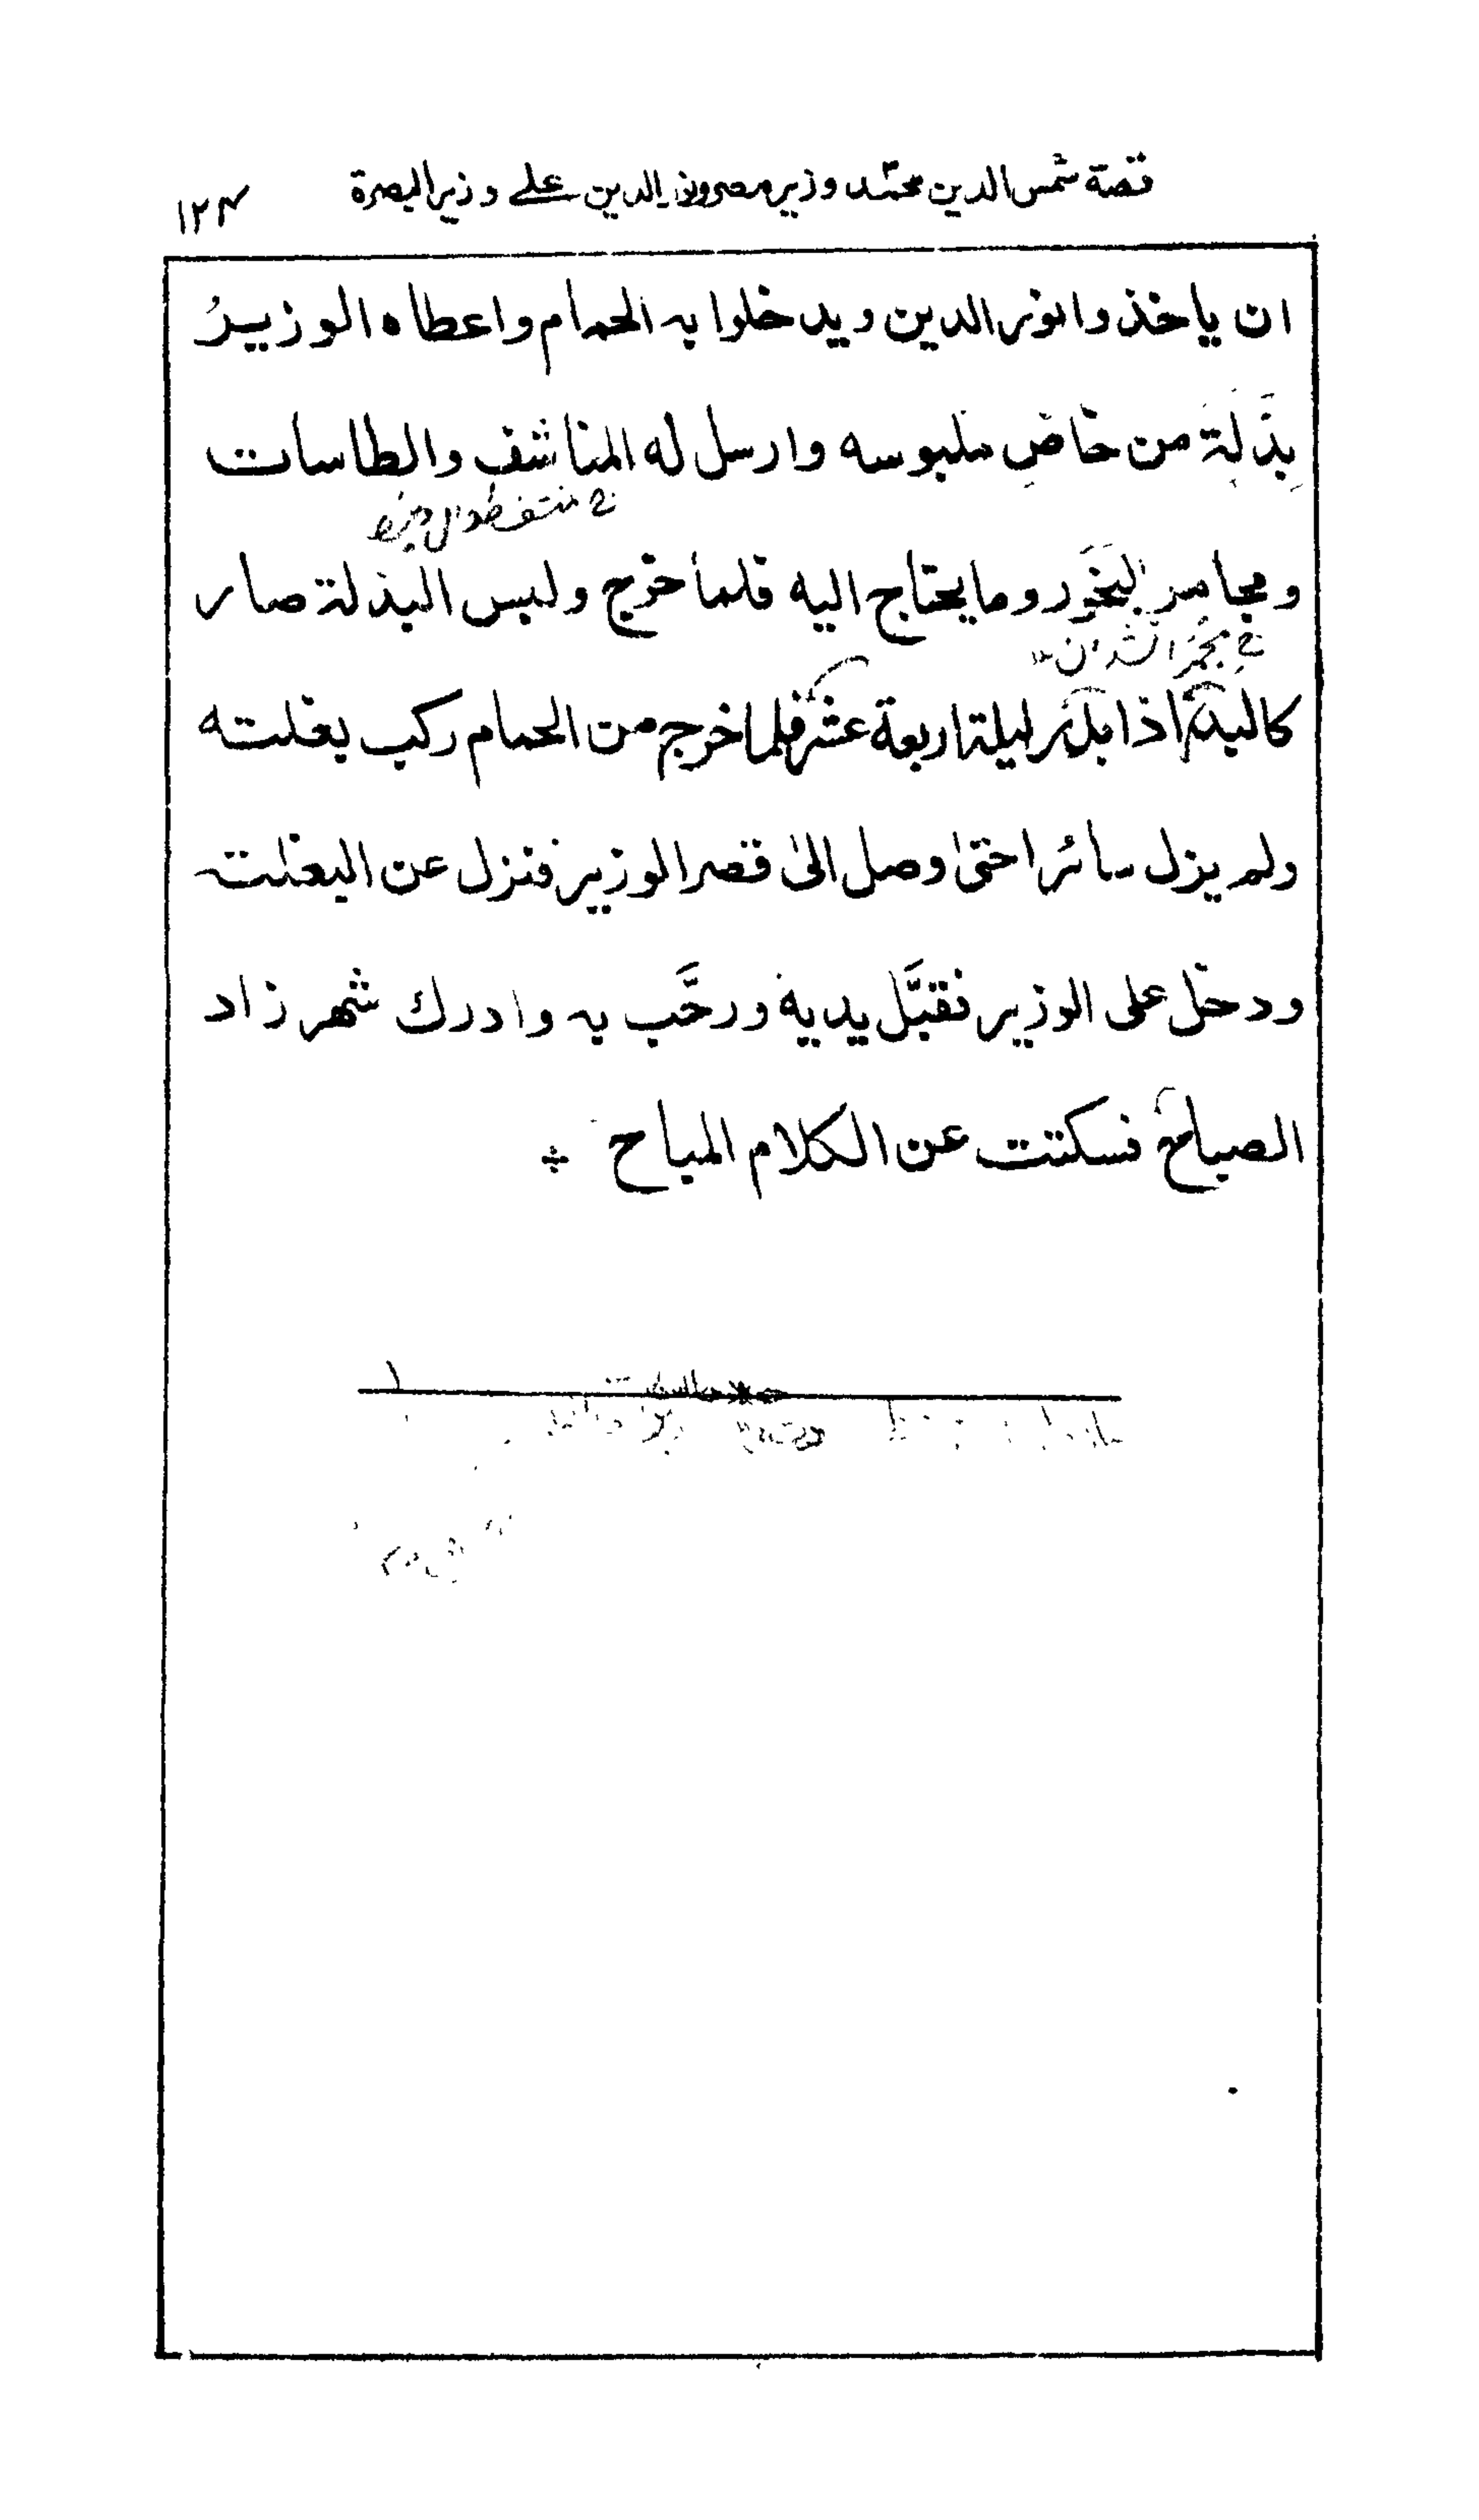 قصة شمس الدين محمد وزير مصر ونور الدين على وزير البصرة
١٢٤
ان ياخذوا نور الدين ويدخلوا به الحمام واعطاه الوزيرُ
بدَلَة من خاصِ ملبوسه وارسل له المناشف والطاسات
ومجامر البَخُور وما يحتاج اليه فلما خرج ولبس البذلة صار
كالبدر اذا بدر ليلة اربعة عشر فلما خرج من الحمام ركب بغلته
ولم يزل سائرا حتى وصل الى قصر الوزير فنزل عن البغلة
ودخل على الوزير فقبَّل يديه ورحَّب به وادرك شهرزاد
الصباح فسكتت عن الكلام المباح